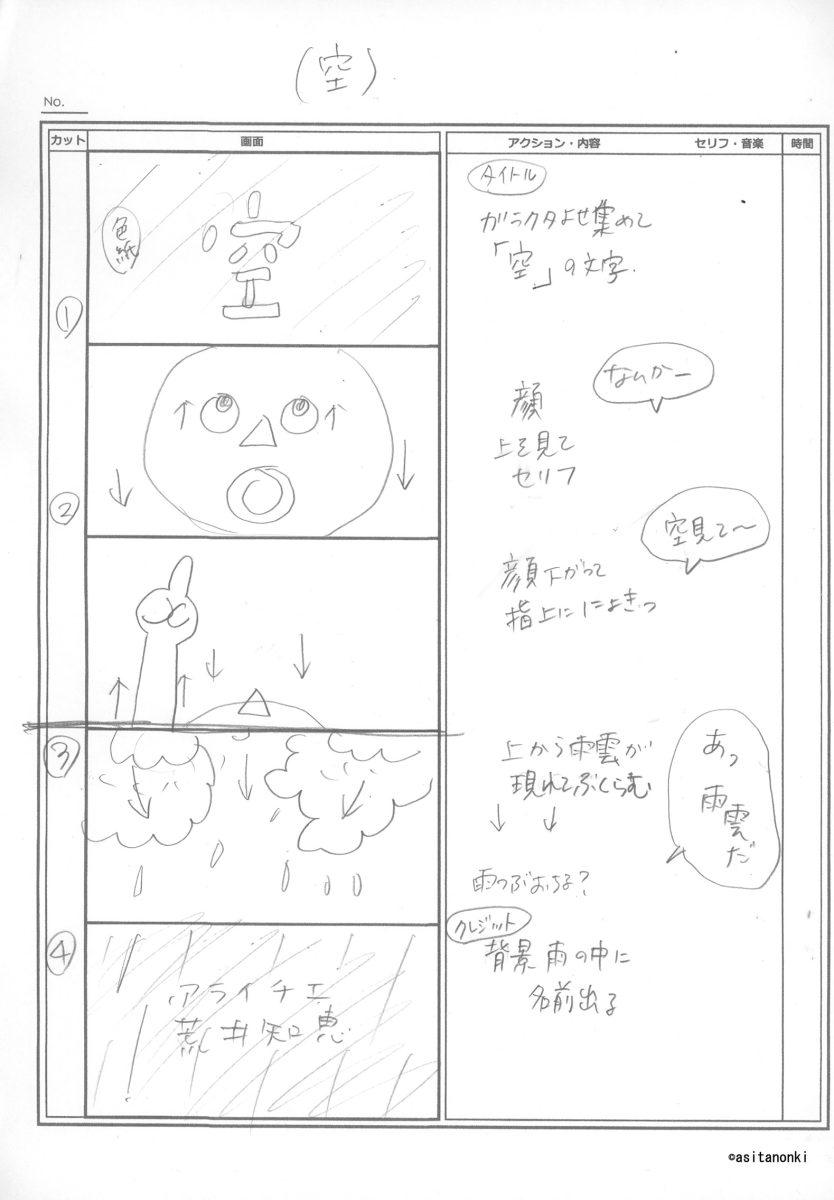 (空)
No.
カット 画面 アクション・内容 セリフ・音楽 時間
色紙
空
タイトル
ガラクタよせ集めて
「空」の文字.
①
なんかー
顔
上を見て
セリフ
②
空見て〜
顔下がって
指上ににょきっ
③
上から雨雲が
現れてぶくらむ
あっ
雨雲だ
雨つぶおちる?
④
クレジット
背景 雨の中に
名前出る
アライチエ
荒井知恵
©asitanonki